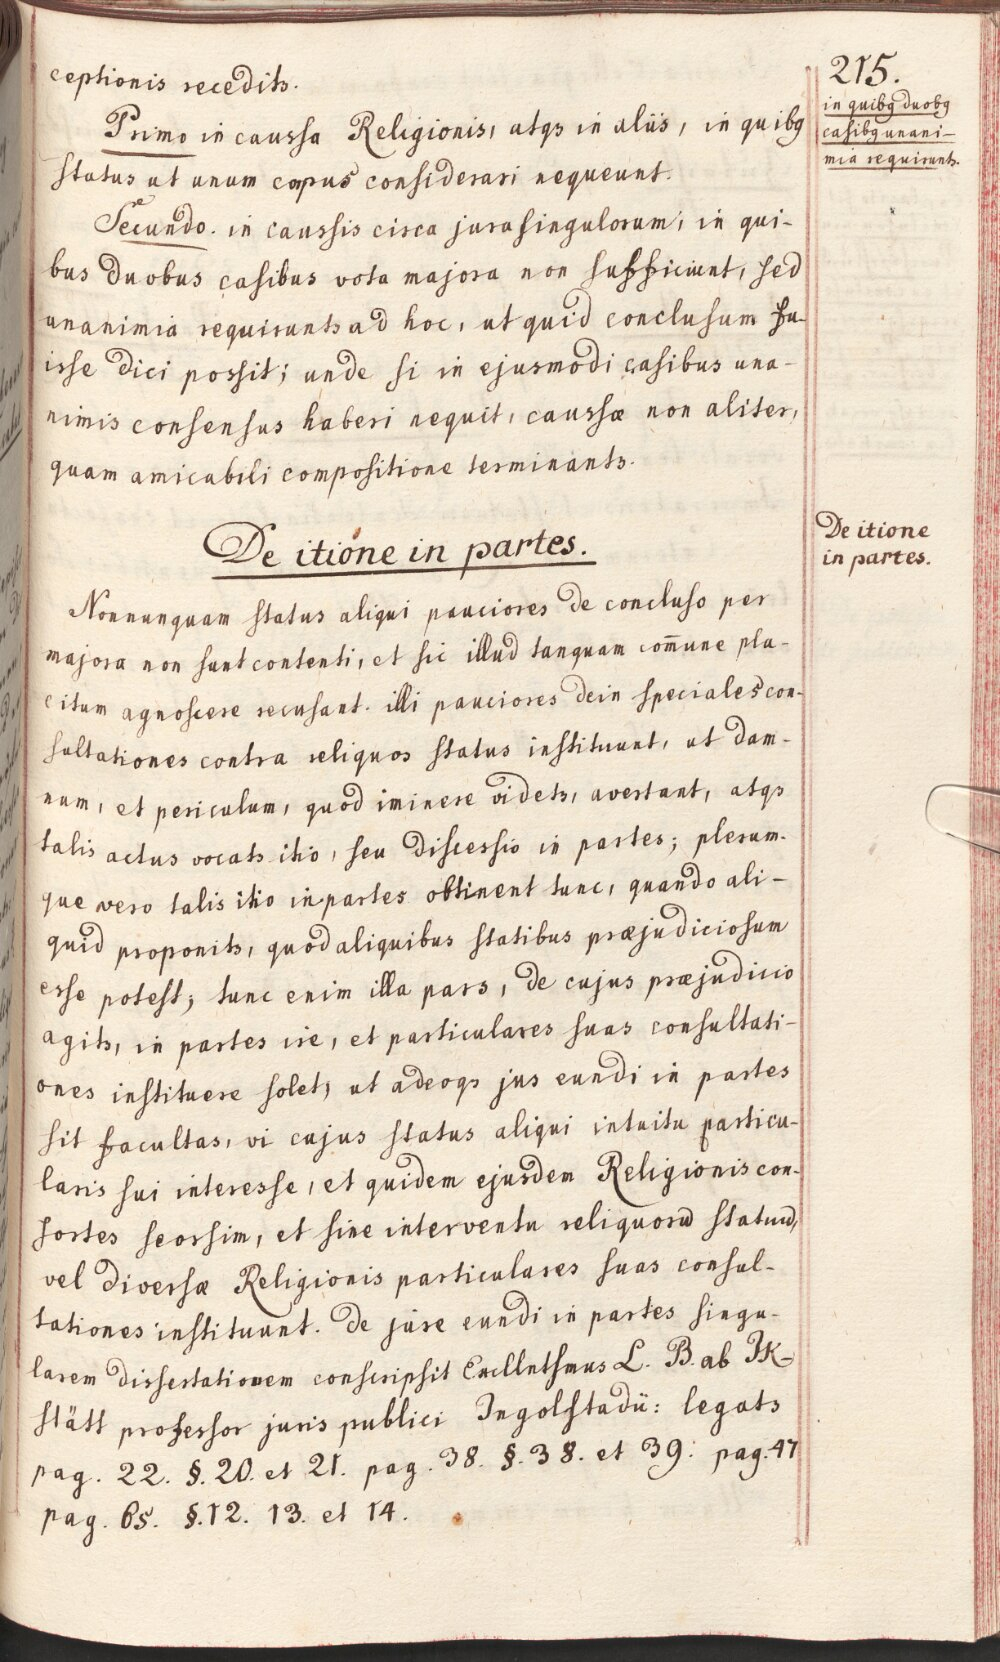 215.
ceptionis recedits.
Primo in caussa Religionis, atqs in aliis, in quibq
status ut unum corpus considerari nequeunt.
in quibq duobq
casibq unani-
mia requirunts.
Secundo. in caussis circa jura singulorum, in qui-
bus duobus casibus vota majora non sufficiunt, sed
unanimia requirunts ad hoc, ut quid conclusum fu-
isse dici possit; unde si in ejusmodi casibus una-
nimis consensus haberi nequit, caussæ non aliter,
quam amicabili compositione terminants.
De itione in partes.
De itione
in partes.
Nonnunquam status aliqui pauciores de concluso per
majora non sunt contenti, et sic illud tanquam com̄une pla-
citum agnoscere recusant. illi pauciores dein speciales con-
sultationes contra reliquos status instituunt, ut dam-
num, et periculum, quod iminere videts, avertant, atqs
talis actus vocats itio, seu discessio in partes; plerum-
que vero talis itio in partes obtinent tunc, quando ali-
quid proponits, quod aliquibus statibus præjudiciosum
esse potest; tunc enim illa pars, de cujus præjudicio
agits, in partes ire, et particulares suas consultati-
ones instituere solet, ut adeoqs jus eundi in partes
sit facultas, vi cujus status aliqui intuitu particu-
laris sui interesse, et quidem ejusdem Religionis con-
sortes seorsim, et sine interventu reliquorū statuū,
vel diversæ Religionis particulares suas consul-
tationes instituunt. De jure eundi in partes singu-
larem dissertationem conscripsit Excllntsmus L. B. ab Ik-
stätt professor juris publici Ingolstadii: legats
pag. 22. §. 20. et 21. pag. 38. §. 38. et 39. pag. 47
pag. 65. §. 12. 13. et 14.